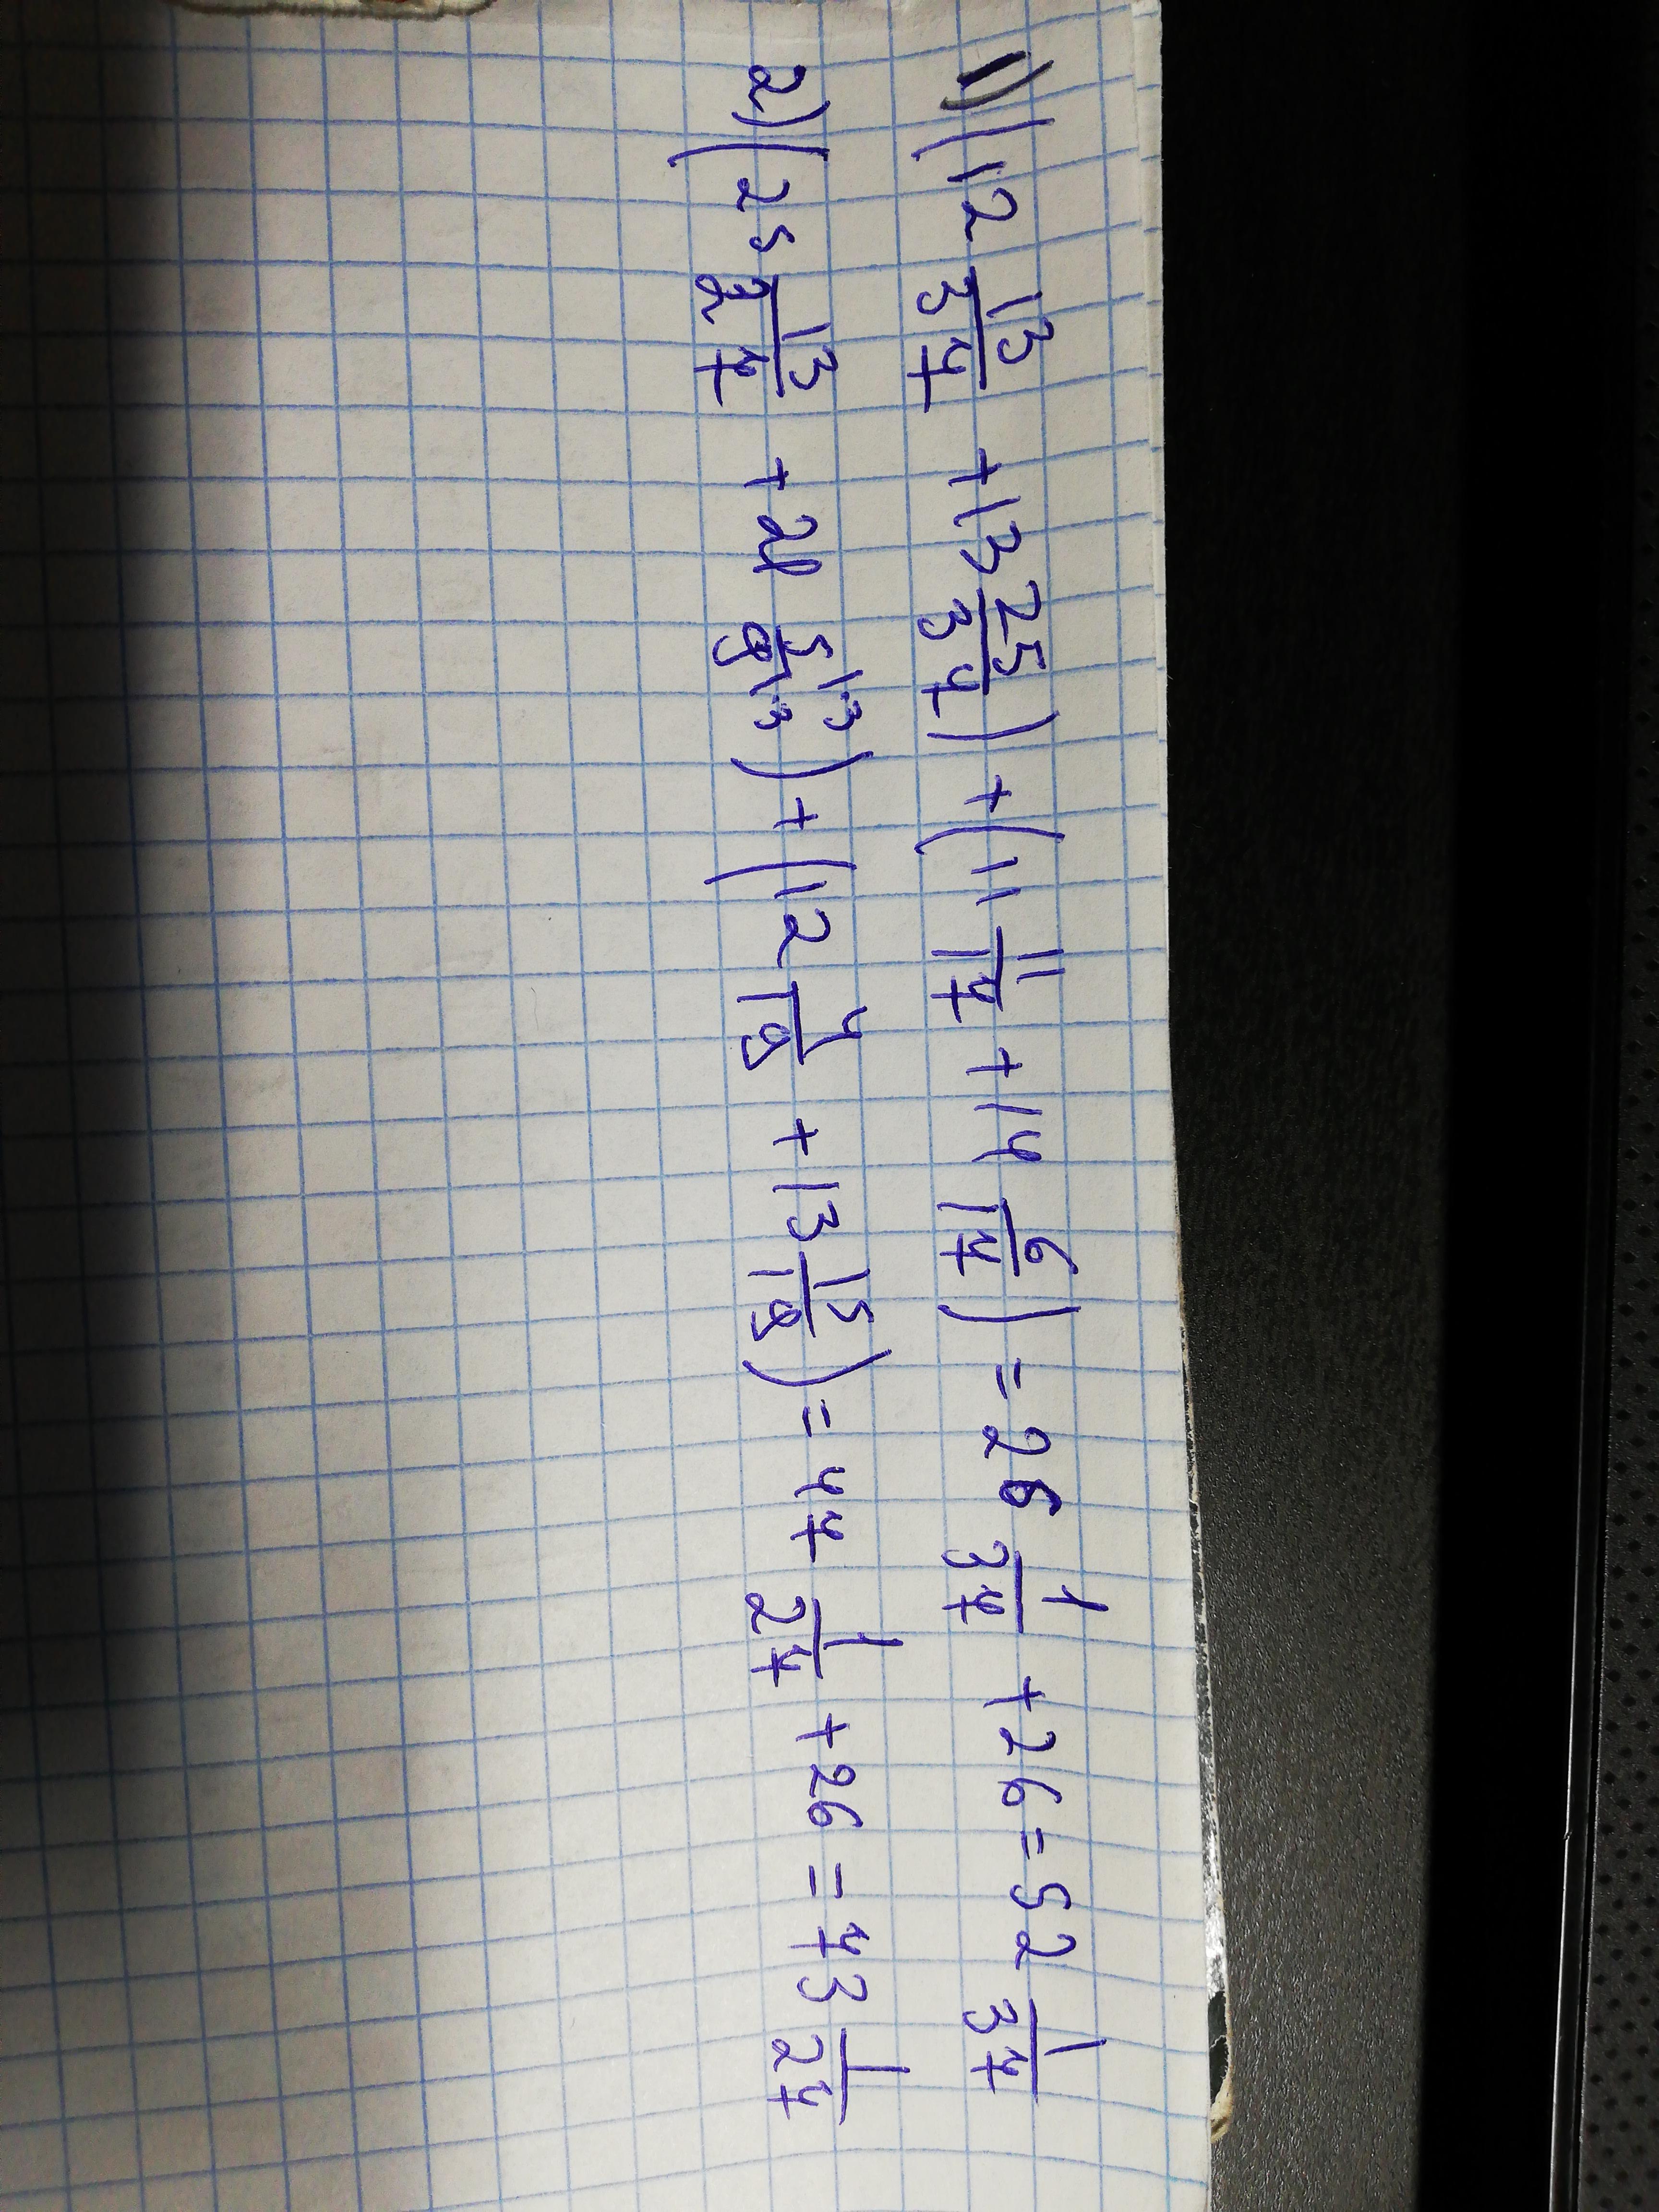 1) (12 13/37 + 13 25/37) + (11 11/17 + 14 6/17) = 26 1/37 + 26 = 52 1/37
2) (25 13/27 + 21 5|·3/9|·3) + (12 4/19 + 13 15/19) = 47 1/27 + 26 = 73 1/27